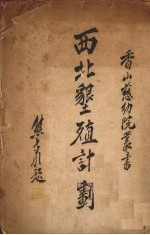 香山慈幼院叢書
西北墾殖計劃
題